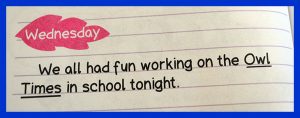 Wednesday
We all had fun working on the Owl
Times in school tonight.